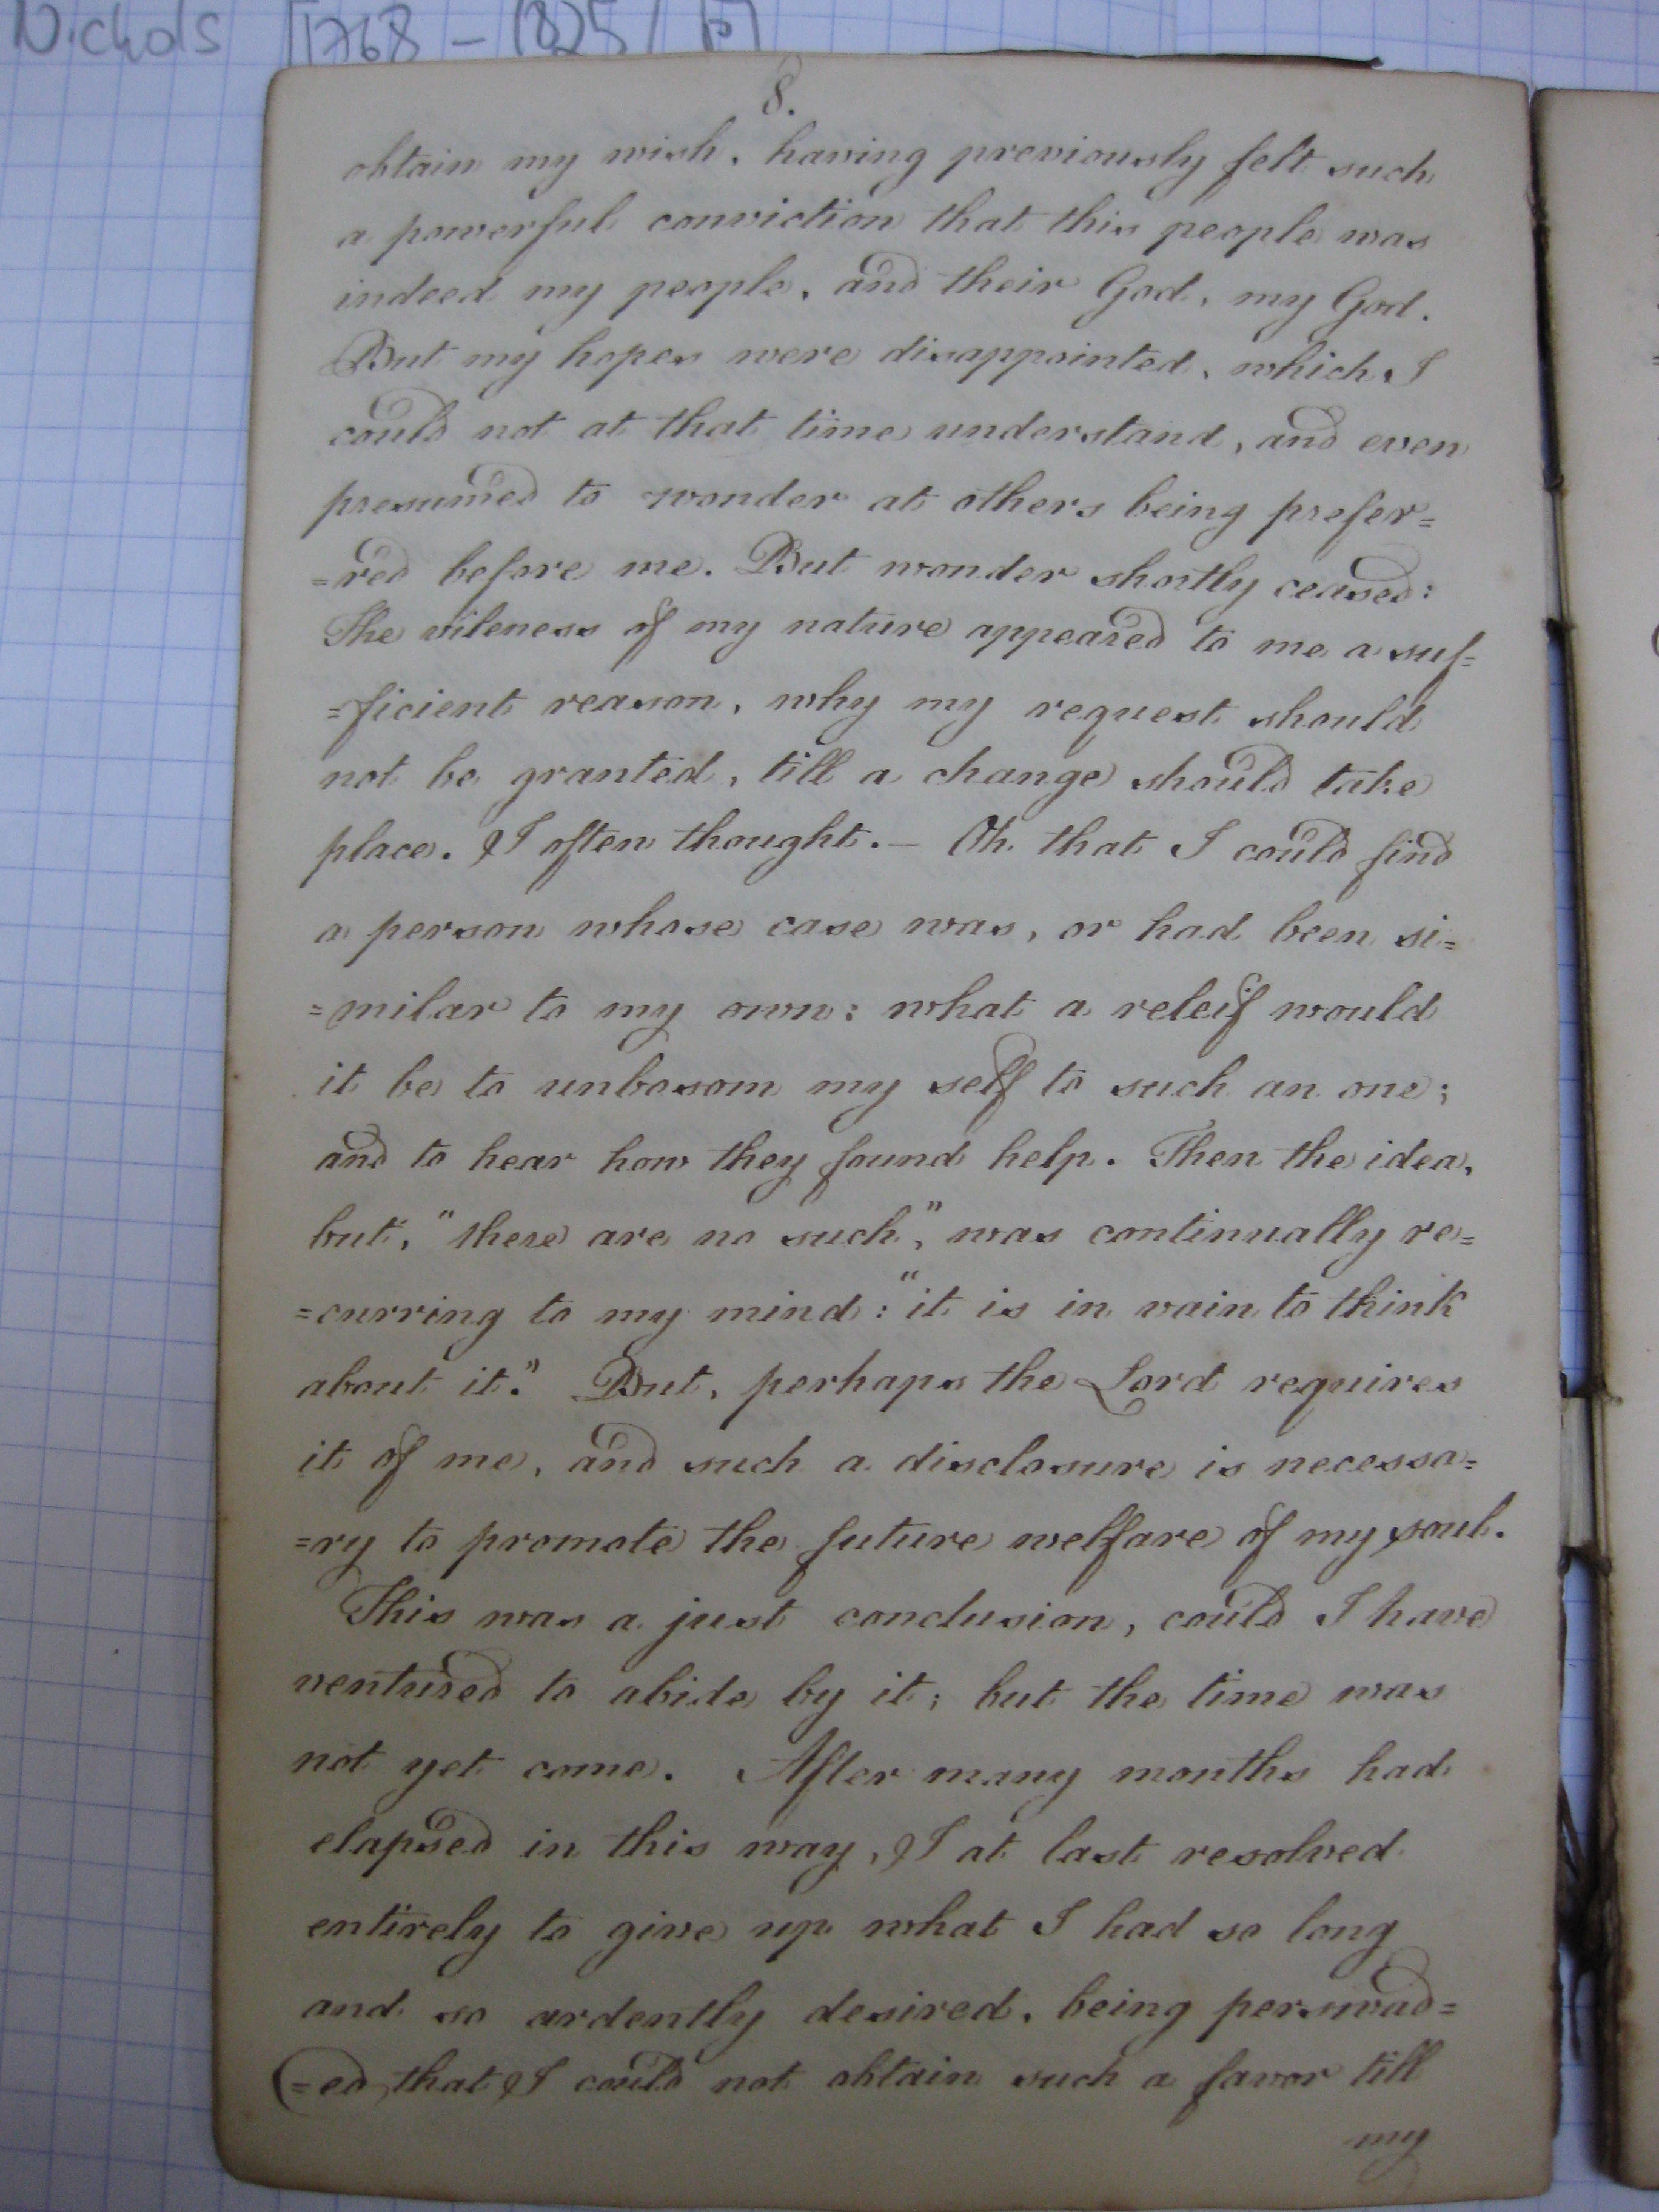 Nichols [1768 - 1825] [P]
8.
obtain my wish, having previously felt such
a powerful conviction that this people was
indeed my people, and their God, my God.
But my hopes were disappointed, which I
could not at that time understand, and even
presumed to wonder at others being prefer=
=red before me. But wonder shortly ceased:
The vileness of my nature appeared to me a suf=
=ficient reason, why my request should
not be granted, till a change should take
place. I often thought.— Oh that I could find
a person whose case was, or had been si=
=milar to my own: what a releif would
it be to unbosom my self to such an one;
and to hear how they found help. Then the idea,
but, "there are no such", was continually re=
=curring to my mind: "it is in vain to think
about it." But, perhaps the Lord requires
it of me, and such a disclosure is necessa=
=ry to promote the future welfare of my soul.
This was a just conclusion, could I have
ventured to abide by it; but the time was
not yet come. After many months had
elapsed in this way, I at last resolved
entirely to give up what I had so long
and so ardently desired, being perswad=
=ed that I could not obtain such a favor till
my